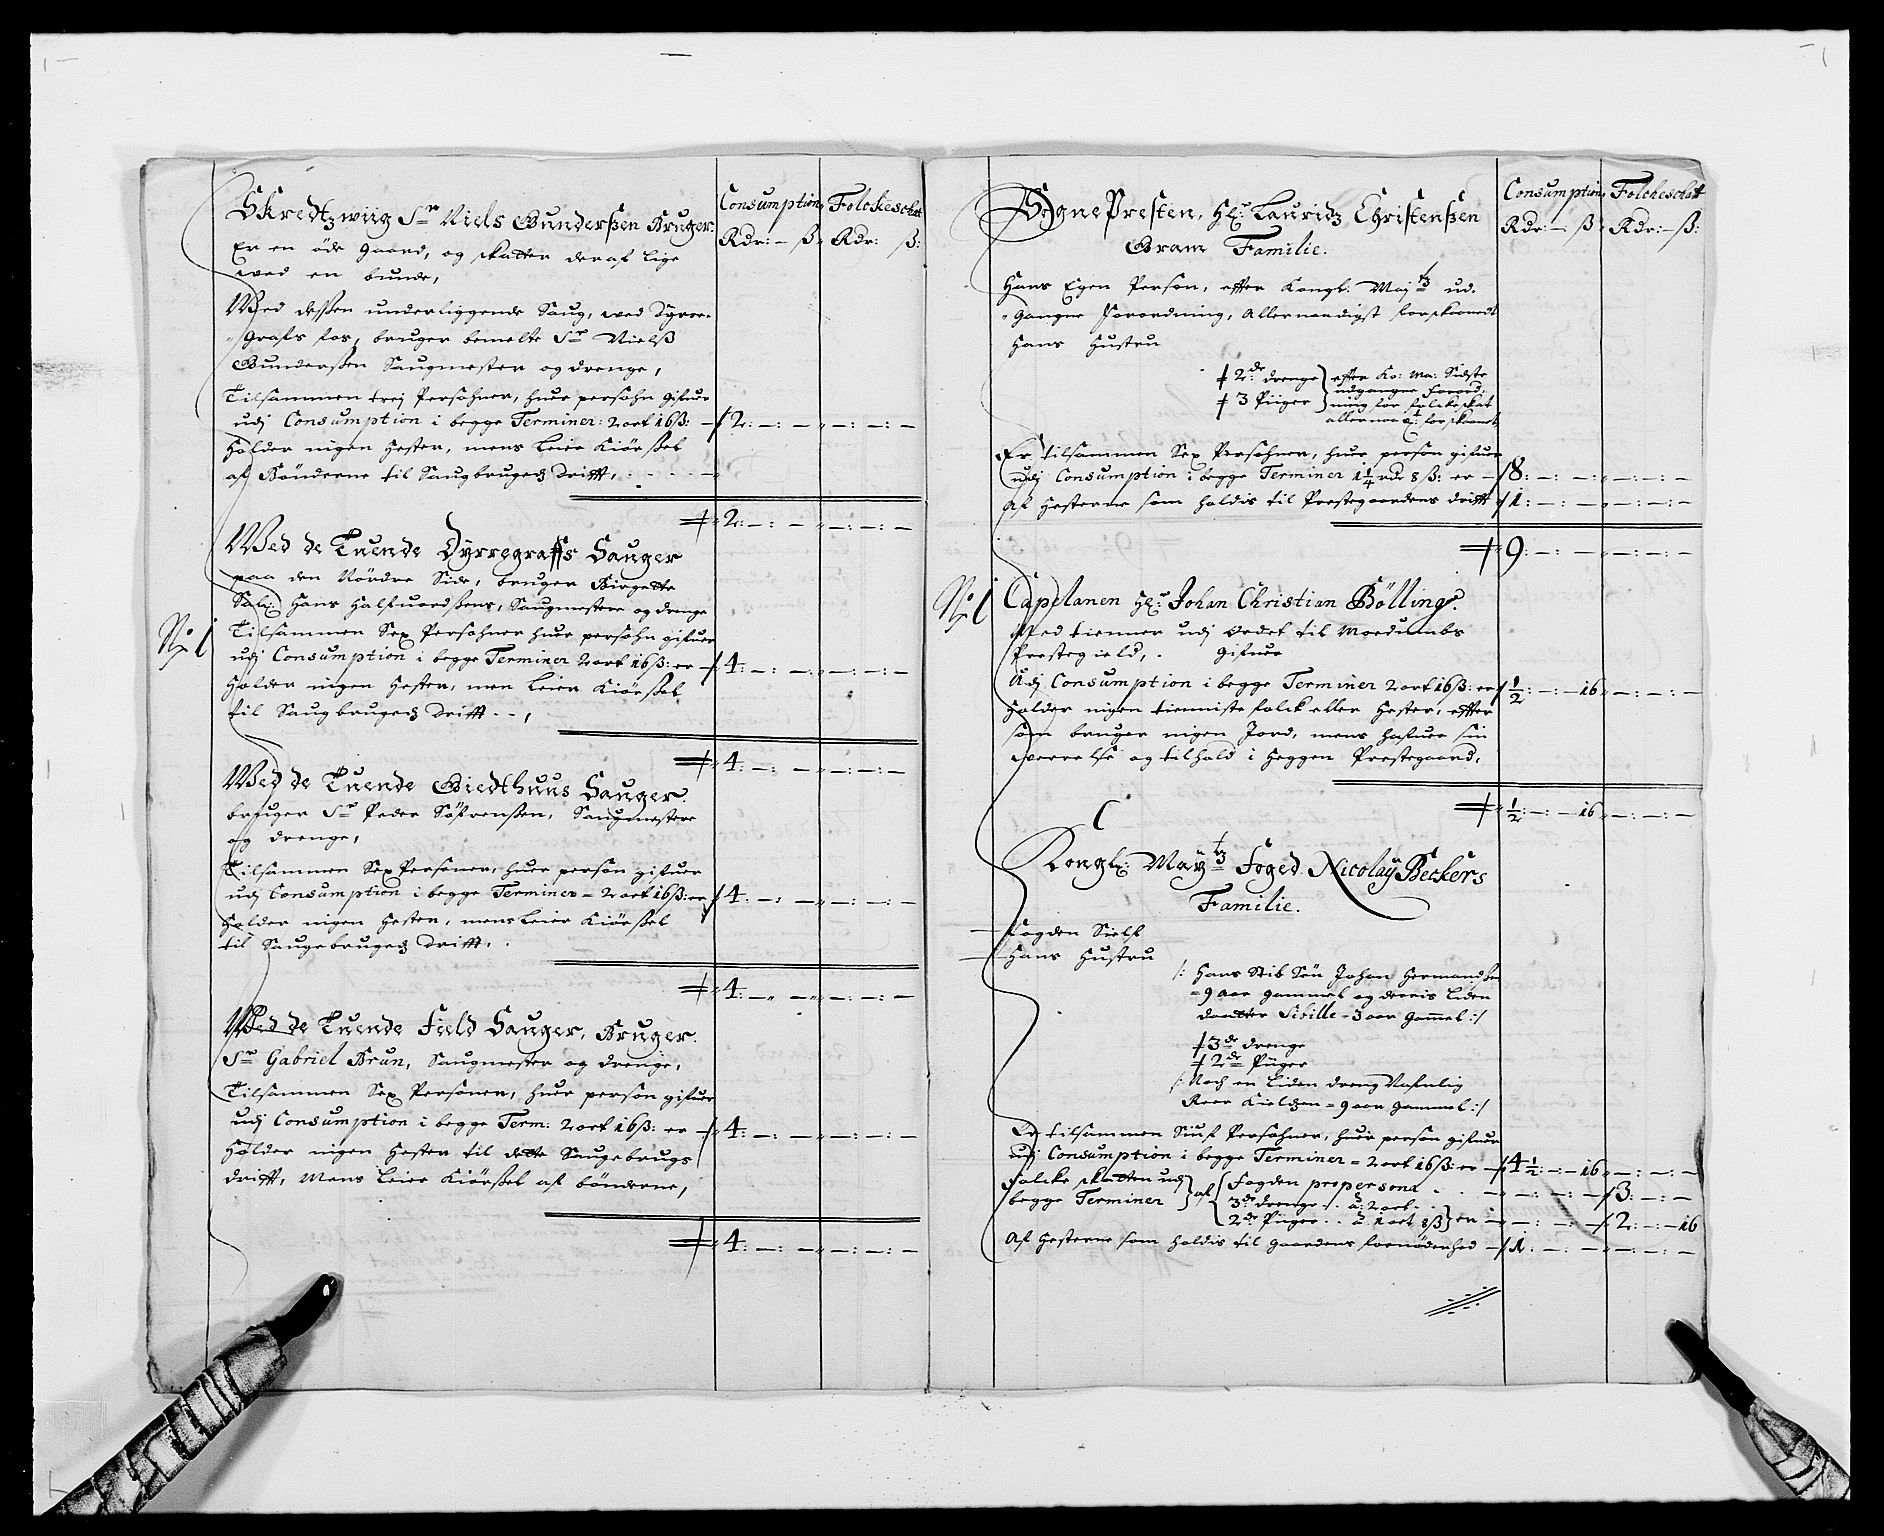 Consumption, Folckeschat
Rdr: – ß. Rdr: ß:
Skredtzwiig Sr Niels Gunderßen Bruger.
Er en öde Gaard, og skatter deraf lige
wed en bunde,
Wed dessen underliggende Saug, wed Dyrre-
Grafs fos, bruger bemelte Sr Nielß
Gunderßen Saugmester og drenge,
Tilsammen trej Persohner, huer persohn gifuer
udj Consumption i begge Terminer: 2 ort 16 ß: – 2: – : –
Holder ingen Hester, mens Leier Kiörßel
af Bönderne til Saugbrugets Drifft,
2: – : –
Wed de Tuende Dyrregraffs Sauger
paa den Nördre Side, bruger Birgette
Sal: Hans Halfuordßens, Saugmestere og drenge
No 1
Tilsammen Sex Persohner huer persohn gifuer
udj Consumption i begge Terminer 2 ort 16 ß: er – 4: – : –
Holder ingen Hester, men Leier Kiörßel
til Saugbrugets Drifft . . ,
4: – : –
Wed de Tuende Giedthuus Sauger.
bruger Sr Peder Söfrenßen, Saugmestere
og drenge,
Tilsammen Sex Personer, huer person gifuer
udj Consumption i begge Terminer = 2 ort 16 ß: er 4: – : –
Holder ingen Hester, mens Leier Kiörßel
til Saugebrugets Drifft.
4: – –
Wed de Tuende Field Sauger, Bruger.
Sr Gabriel Brun, Saugmester og drenge,
Tilsammen Sex Personer, huer person gifuer
udj Consumption i begge Term: 2 ort 16 ß: er – 4: – : –
Holder ingen Hester til dette Saugebrugs
drifft, Mens Leier Kiörßel af bönderne,
4: – : –
Consumption, Folckeschatt
Rdr: – ß. Rdr: – ß:
SognePresten, Hr: Lauridz Christenßen
Gram Familie.
Hans Egen Person, effter Kongl: Majtz ud-
Gangne Forordning, Allernaadigst forskaanet
Hans Hustru
2de drenge effter Ko: Ma: Sidste
3 Piiger udgangne Forord-
ning for folckeskat
allernaa: forskaanet
Er tilsammen Sex Persohner, huer person gifuer
udj Consumption i begge Terminer 1 1/4 rdr 8 ß: er – 8: – : –
Af Hesterne som holdis til Prestegaardens drifft 1: – : –
9: – : –
No 1
Capelanen Hr: Johan Christian Bölling.
Med tienner udj Ordet til Moedumbs
Prestegield, . Gifuer
Udj Consumption i begge Terminer 2 ort 16 ß: er 1/2: – : – 16
Holder ingen tienniste folck eller Hester, effter
som bruger ingen Jord, mens hafuer sin
werrelse og tilhold i Heggen Prestegaard,
1/2: – : – 16
Kongl: Maytz Foged Nicolay Beckers
Familie.
Fogden Sielf
Hans Hustru
/: Hans Stib Sön Johan Hermandßen
= 9 aar gammel og derris Liden
daatter Sibille = 3 aar gammel :/
3de drenge
2de Piiger
/: Noch en Liden dreng Nafnlig
Reer Kieldßen = 9 aar gammel :/
Er tilsammen Siuf Persohner, huer person gifuer
udj Consumption i begge Terminer = 2 ort 16 ß: er – 4 1/2: – : – 16
Folcke skatten udj begge Terminer af Fogden pro persona . . 3: – : –
3de drenge . . a: 2 ort . .
2de Piiger . . a 1 ort 8 ß er 2: – : – 16
Af Hesterne som holdis til Gaardens fornödenhed – 1: – : –